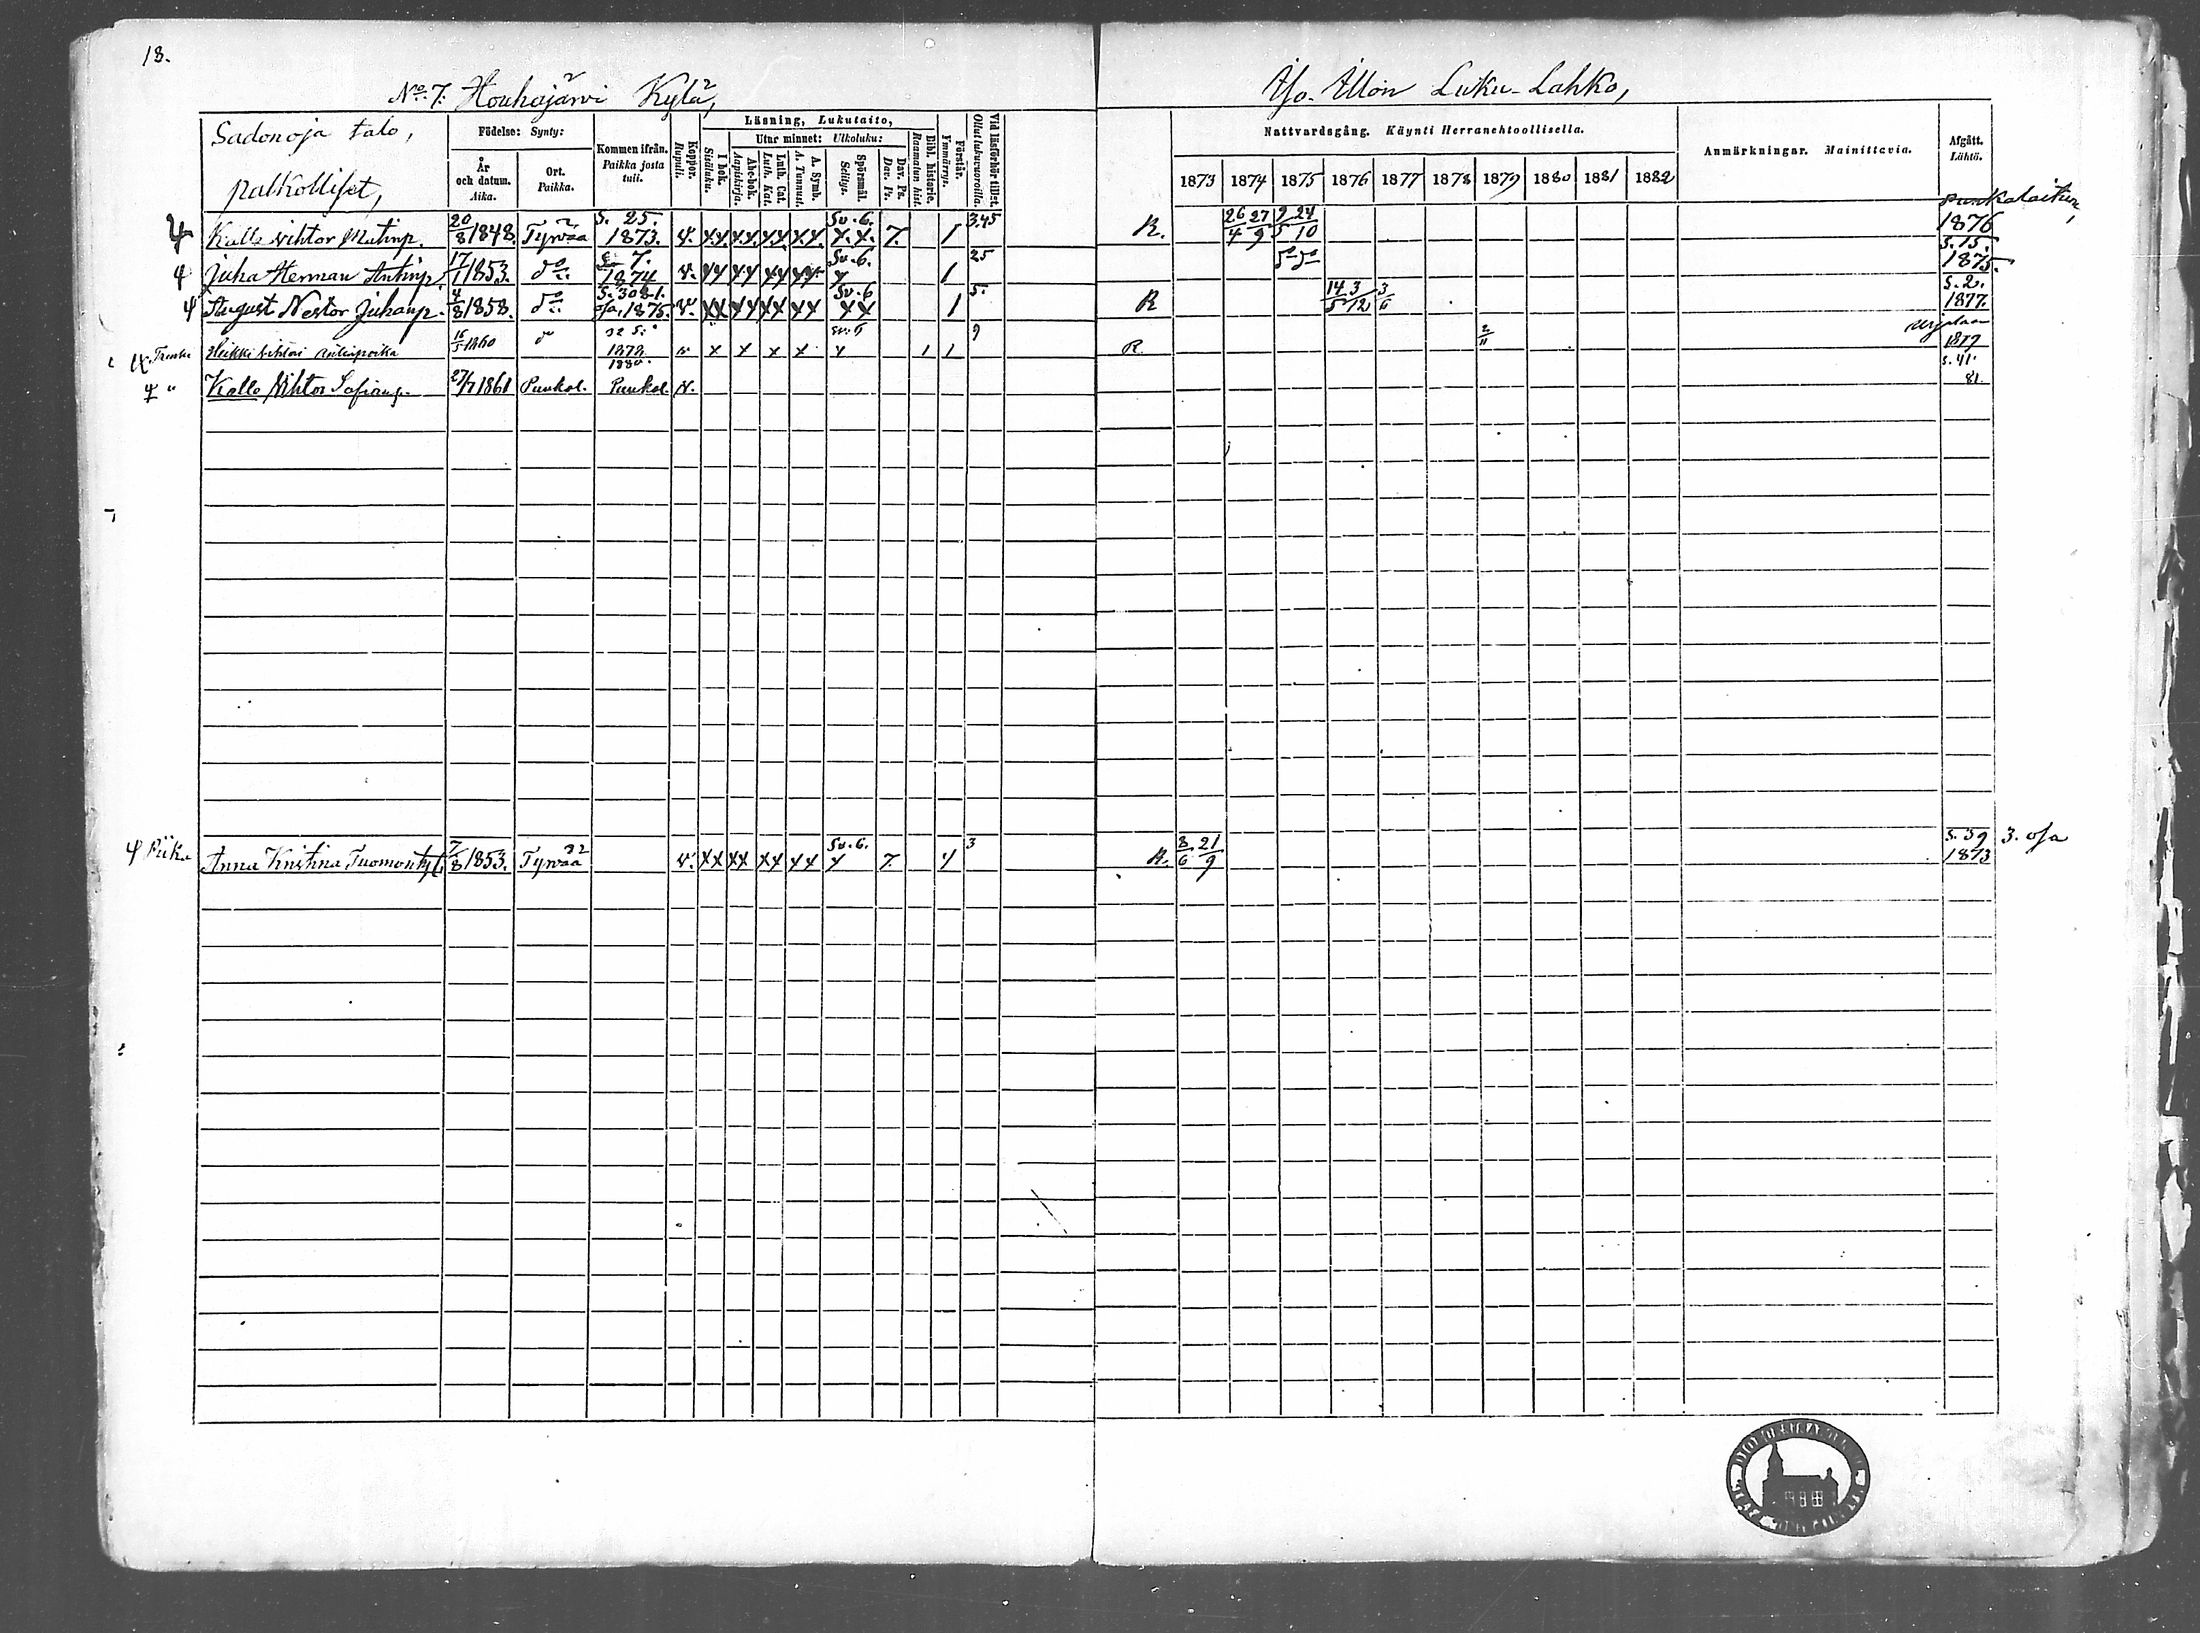 18.
No. 7. Houhajärvi Kylä,
Yso-Ällön Luku-Lahko,
Sadonoja talo,
palkolliset,
Födelse: Synty:
År och datum. Aika.
Ort. Paikka.
Kommen ifrån. Paikka josta tuli.
Koppor. Rupuli.
Läsning, Lukutaito,
I bok. Sisäluku.
Utur minnet: Ulkoluku:
Abc-bok. Aapiskirja.
Luth. Cat. Luth. Kat.
A. Symb. A. Tunnust.
Spörsmål. Selitys.
Dav. Ps. Dav. Ps.
Bibl. historie. Raamatun hist.
Förstår. Ymmärrys.
Vid läsförhör tillst. Ollut lukuvuoroilla.
Nattvardsgång. Käynti Herranehtoollisella.
1873 1874 1875 1876 1877 1878 1879 1880 1881 1882
Anmärkningar. Mainittavia.
Afgått. Lähtö.
Kalle Vihtor Matinp. 20/8 1848. Tyrvää S. 25. 1873. v. xx xx xx xx Sv. 6. x.x. 7. 1 3.45 R. 26/4 27/9 9/5 24/10 Punkalaitun, 1876
Juha Herman Antinp. 17/1 1853. do 7. 1874 v. xx xx xx xx Sv. 6. x 1 25 do do S. 15. 1875.
August Nestor Juhanp. 4/8 1858. do S. 308 1. osa, 1875. v. xx xx xx xx Sv. 6 xx 1 5. R 14/5 3/12 3/6 S. 2. 1877.
Trenki Heikki Vihtori Antinpoika 16/5 1860 d 32 S. 1878 v x x x x Sv. 6 x 1 1 9 R. 2/11 Urjalaan 1879
" Kalle Vihtor Sofianp. 27/7 1861 Punkal. 1880 Punkal. v. S. 41. 81.
Piika Anna Kristina Tuomontyt. 7/8 1853. Tyrvää v. xx xx xx xx Sv. 6. x 7. 1 3 R. 8/6 21/9 S. 39 1873 3. osa